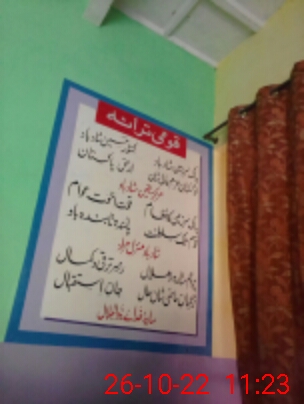 قومی ترانہ
پاک سرزمین شاد باد کشور حسین شاد باد
تو نشان عزم عالی شان ارض پاکستان
مرکز یقین شاد باد
پاک سرزمین کا نظام قوت اخوت عوام
قوم ملک سلطنت پائندہ تابندہ باد
شاد باد منزل مراد
پرچم ستارہ و ہلال رہبر ترقی و کمال
ترجمان ماضی شان حال جان استقبال
سایۂ خدائے ذوالجلال
26-10-22 11:23